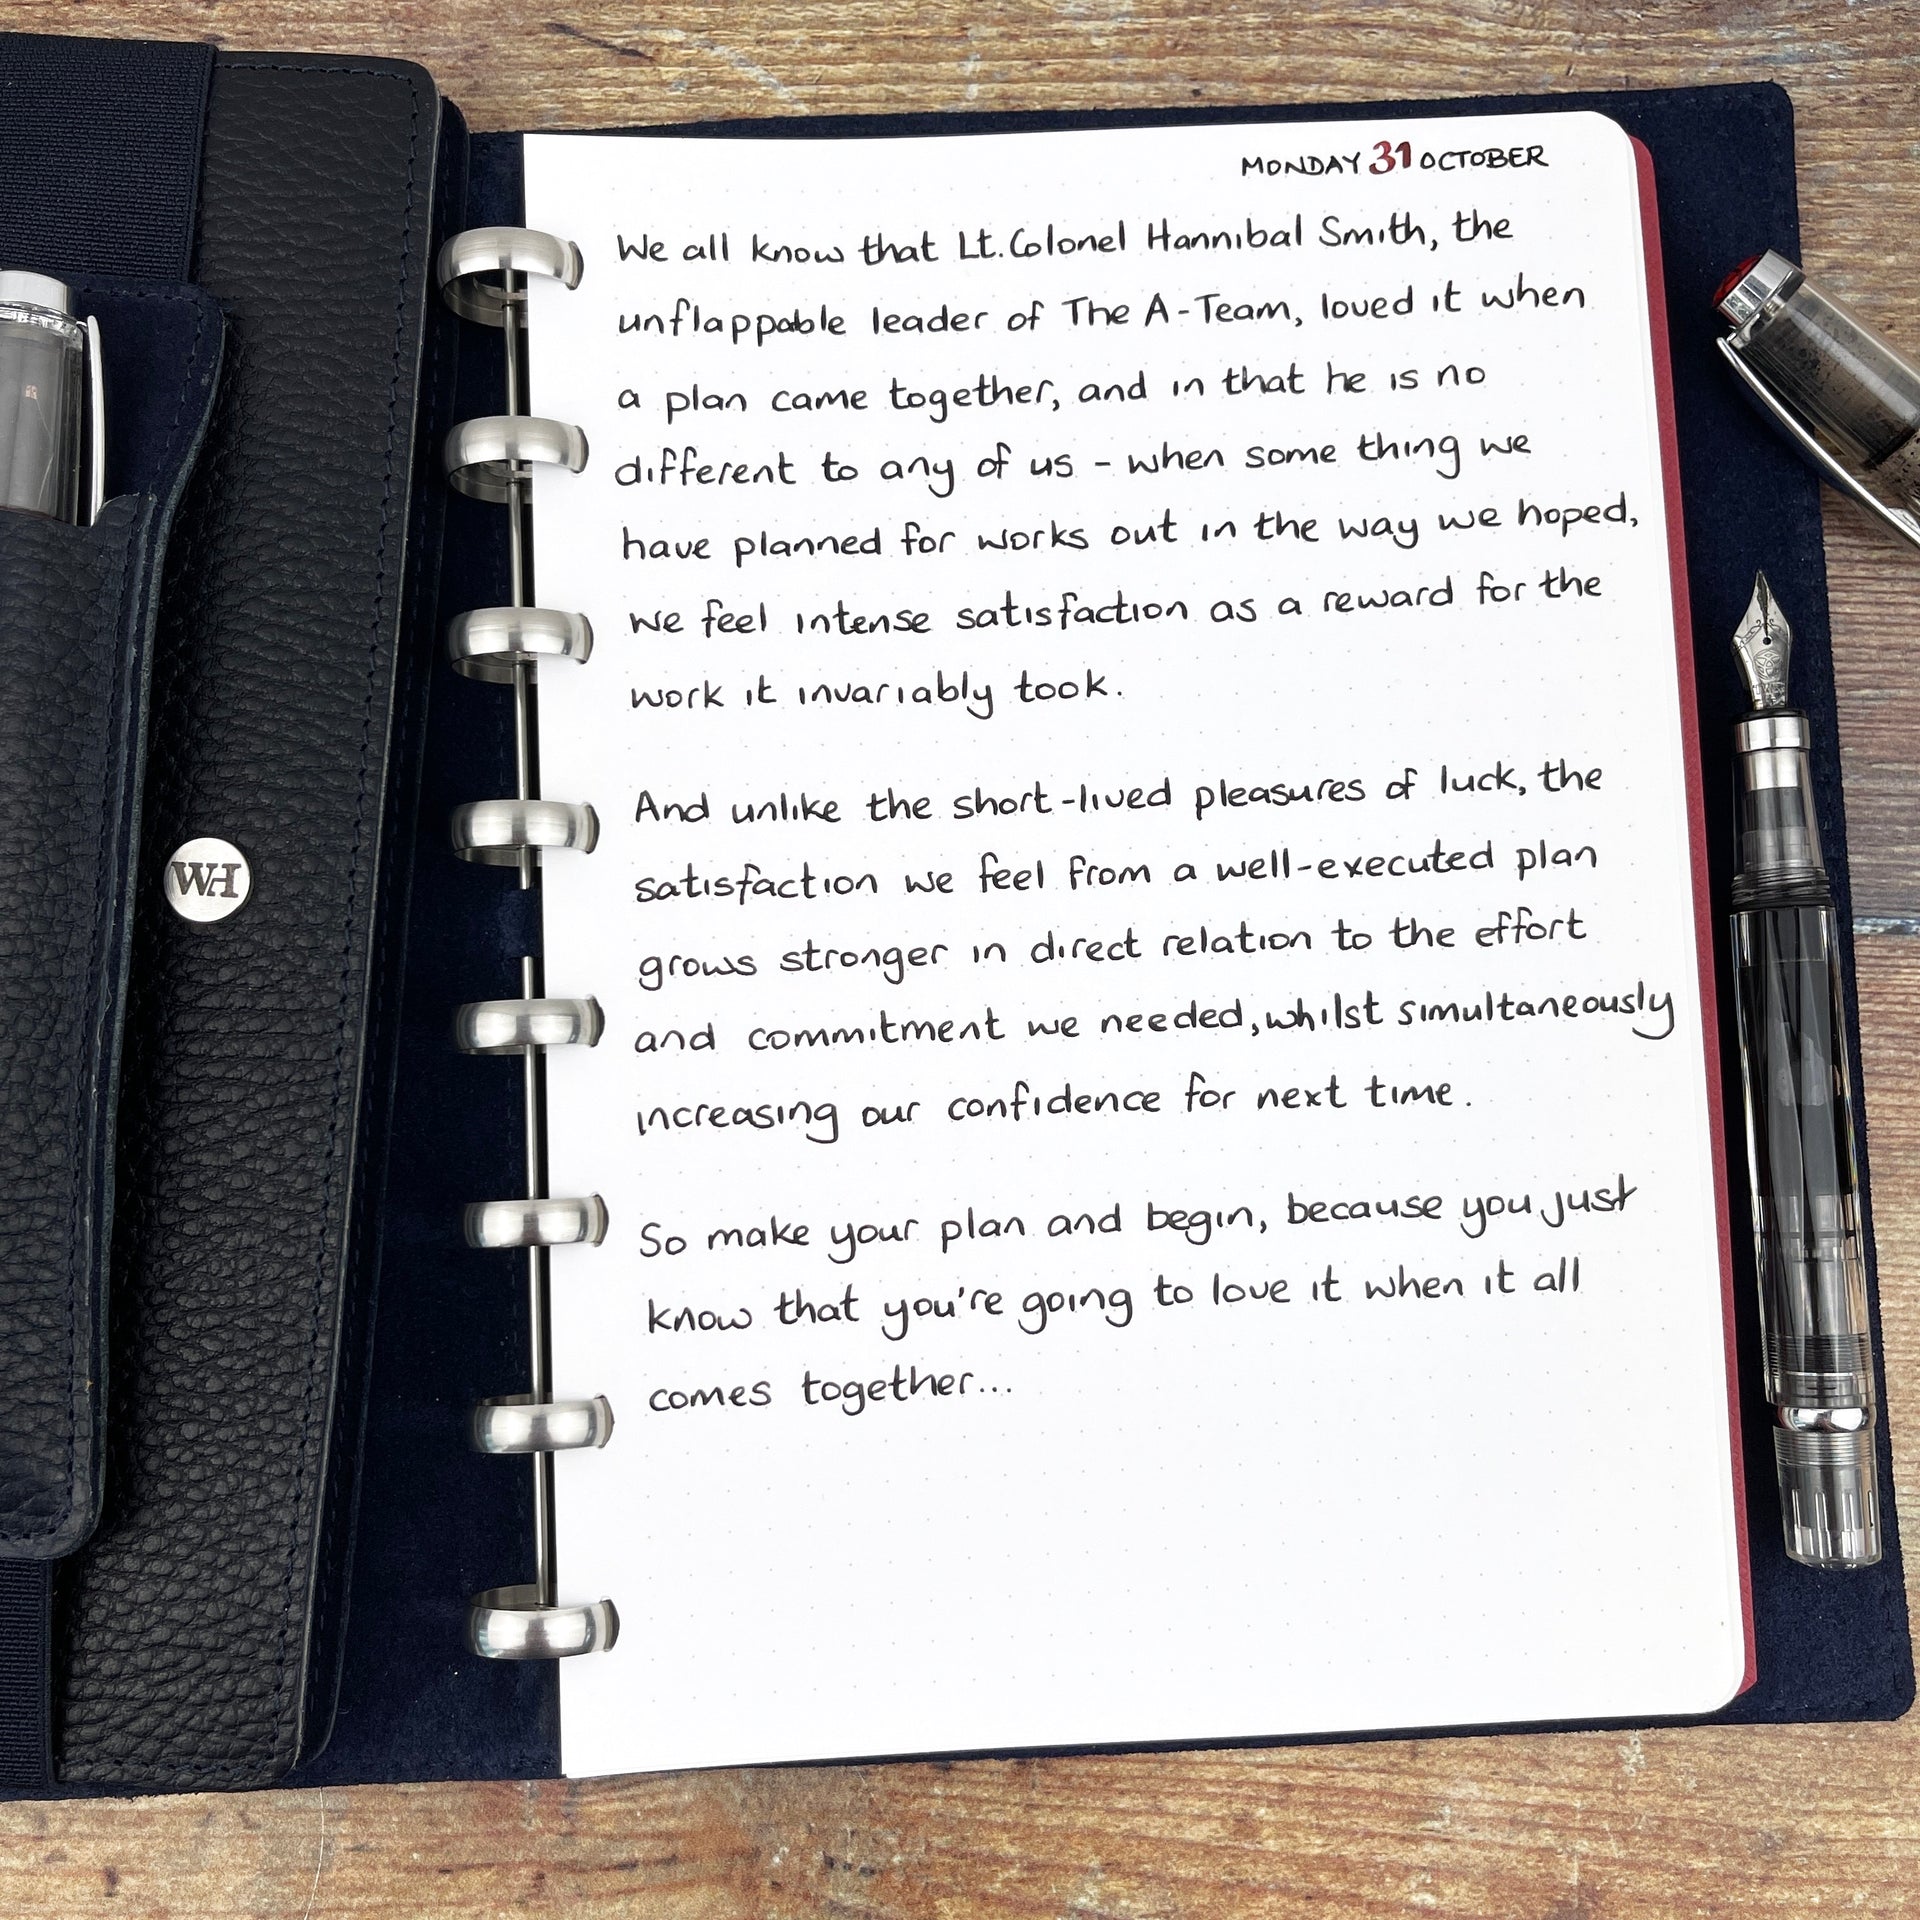 MONDAY 31 OCTOBER
We all know that Lt. Colonel Hannibal Smith, the
unflappable leader of The A-Team, loved it when
a plan came together, and in that he is no
different to any of us - when some thing we
have planned for works out in the way we hoped,
we feel intense satisfaction as a reward for the
work it invariably took.
And unlike the short-lived pleasures of luck, the
satisfaction we feel from a well-executed plan
grows stronger in direct relation to the effort
and commitment we needed, whilst simultaneously
increasing our confidence for next time.
So make your plan and begin, because you just
know that you're going to love it when it all
comes together...
WH